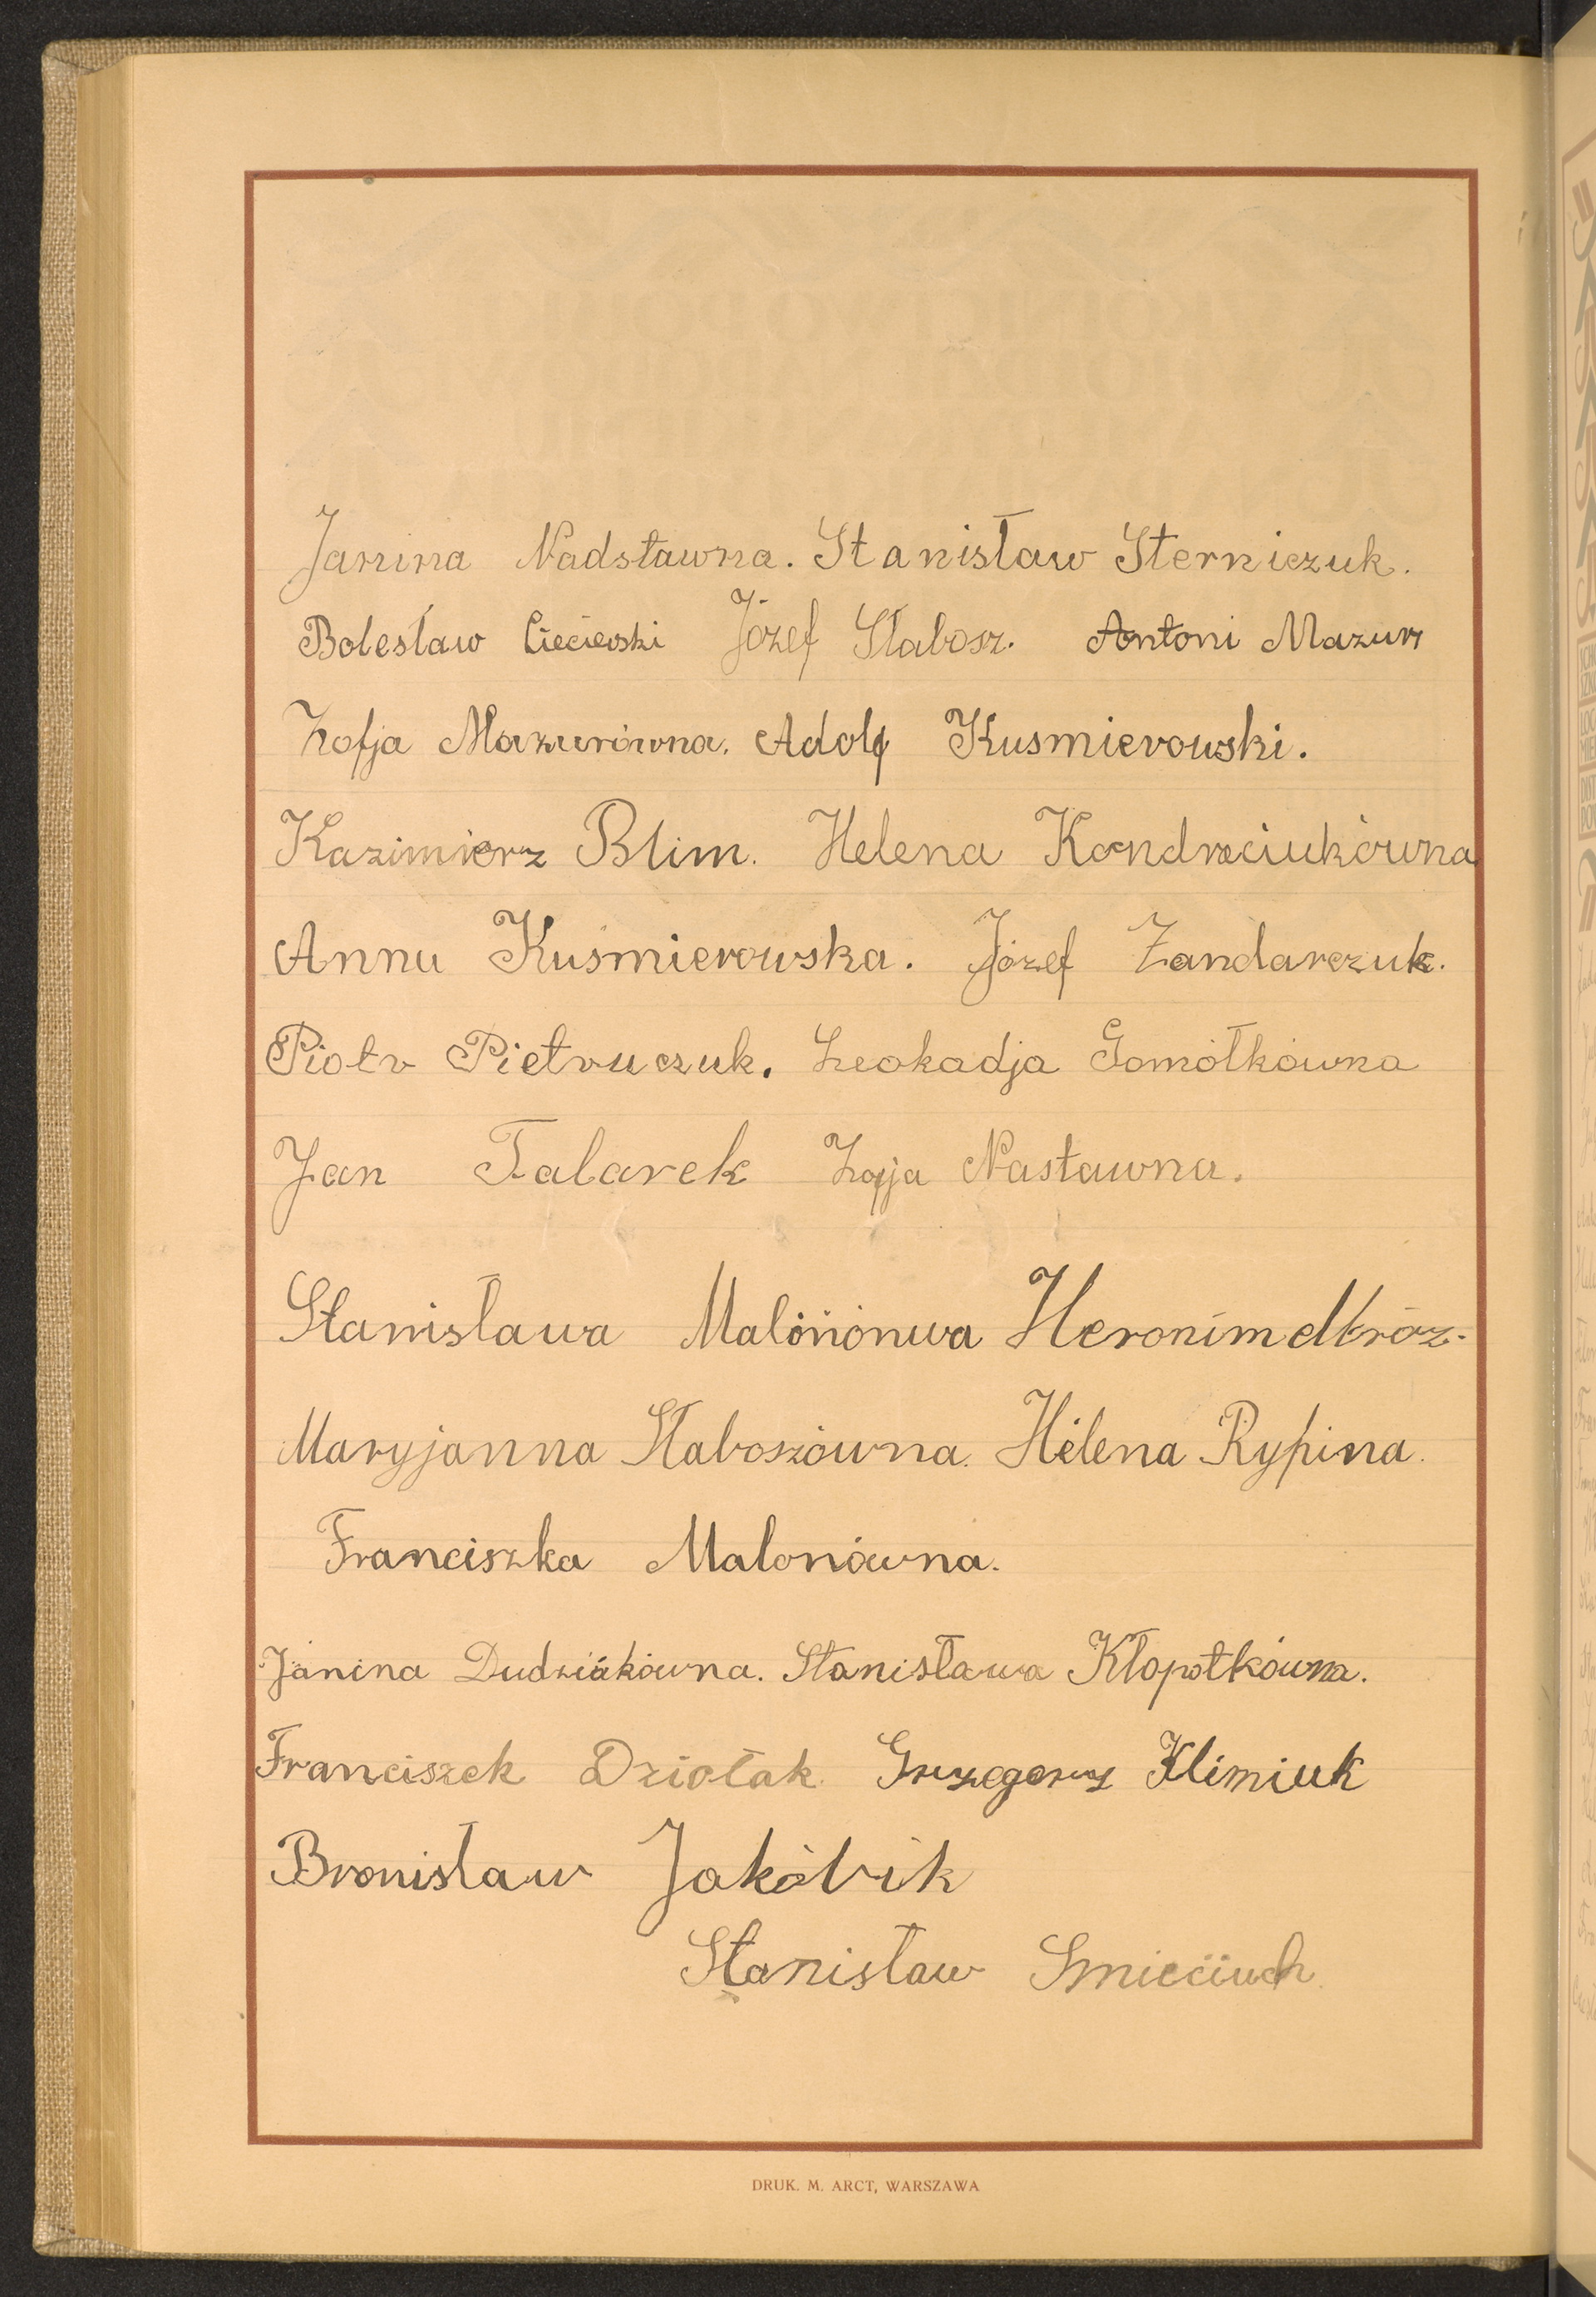 Janina Nadstawna. Stanisław Sterniczuk.
Bolesław Ciecierski Józef Słabosz. Antoni Mazur
Zofja Mazurówna. Adolf Kusmierowski.
Kazimierz Blim. Helena Kondraciukówna
Anna Kuśmierowska. Józef Żandarczuk.
Piotr Pietruczuk. Leokadja Gomółkówna
Jan Talarek Zofja Nastawna.
Stanisława Malonónwa Heronim Mróz.
Maryjanna Słaboszówna. Helena Rypina.
Franciszka Malonówna.
Janina Dudziakówna. Stanisława Kłopotkówna.
Franciszek Dziołak Grzegorz Klimiuk
Bronisław Jakóbik
Stanisław Smieciuch
DRUK. M. ARCT, WARSZAWA